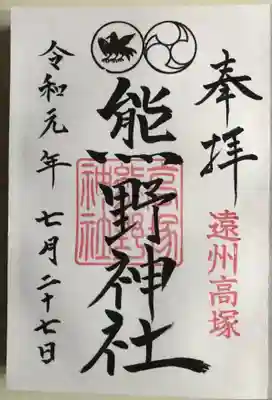 奉拝
遠州高塚
熊野神社
高塚熊野神社
令和元年七月二十七日